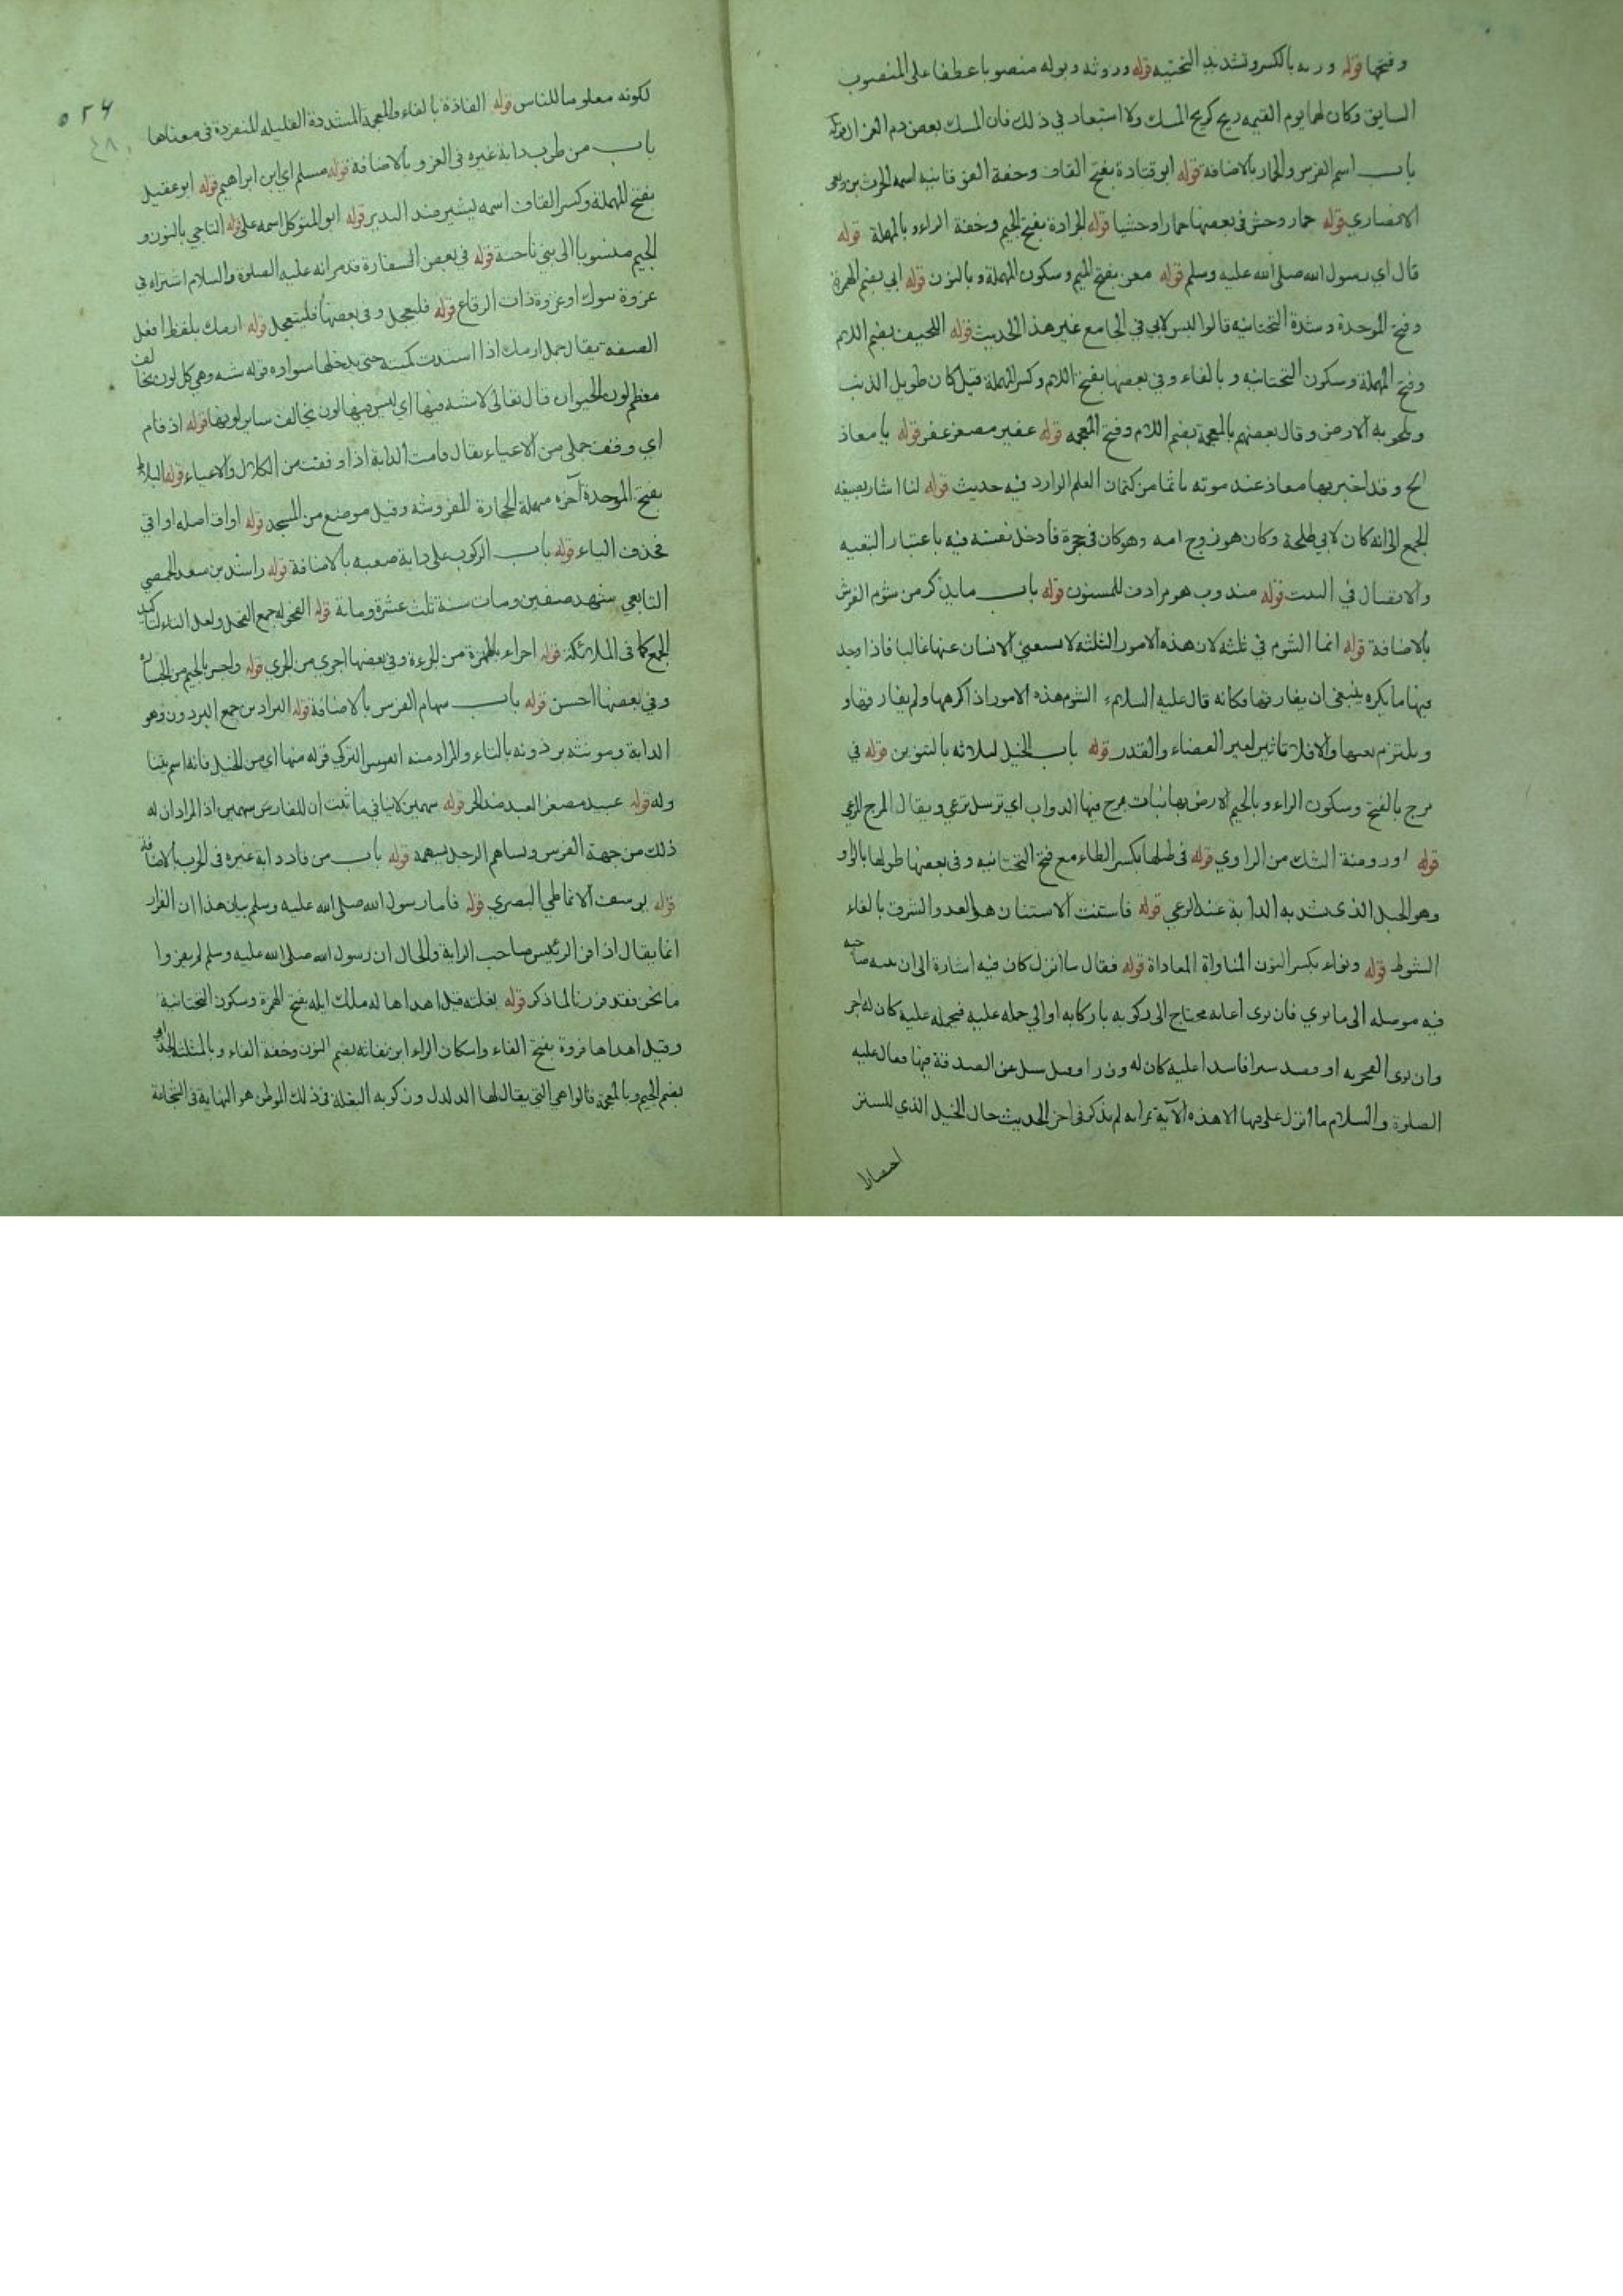 وفتحها قوله وريه بالكسر وتشديد التحتيه قوله وروثه وبوله منصوبا عطفا على المنصوب
السابق وكان لها يوم القيمه ريح كريح المسك ولا استبعاد في ذلك فان المسك بعض دم الغزال
باب اسم الفرس والحمار بالاضافة قوله ابو قتادة بفتح القاف وخفة الفوقانيه اسمه الحرث بن ربعي
الانصاري قوله حمار وحش في بعضها حمارا وحشيا قوله الجرادة بفتح الجيم وخفة الراء وبالمهملة قوله
قال اي رسول الله صلى الله عليه وسلم قوله معن بفتح الميم وسكون المهملة وبالنون قوله ابي بضم الهمزة
وفتح الموحدة وشدة التحتانيه قالوا ليس لابي في الجامع غير هذا الحديث قوله اللحيف بضم اللام
وفتح المهملة وسكون التحتانيه وبالفاء وفي بعضها بفتح اللام وكسر المهملة قيل كان طويل الذنب
وقال بعضهم بالمعجمة بضم اللام وفتح المعجمه قوله عفير مصغر عفر قوله يا معاذ
الخ وقد اخبر بها معاذ عند موته تاثما من كتمان العلم الوارد فيه حديث قوله لنا اشار بصيغه
الجمع الى انه كان لابي طلحة وكان هو زوج امه وهو كان في حجرة فادخل نفسه فيه باعتبار التبعيه
والاتصال في البيت قوله مندوب هو مرادف للمسنون قوله باب ما يذكر من شوم الفرس
بالاضافة قوله انما الشوم في ثلثه لان هذه الامور الثلثه لا يستغني الانسان عنها غالبا فاذا وجد
فيها ما يكره ينبغي ان يفارقها فكانه قال عليه السلام الشوم هذه الامور اذا كرهها ولم يفارقها و
ويلتزم بعيبها والا فلا تاثير لغير القضاء والقدر قوله باب الخيل لثلاثه بالتنوين قوله في
مرج بالفتح وسكون الراء وبالجيم الارض بها نبات مرج فيها الدواب اي ترسل ترعي ويقال المرج المرعي
قوله او روضة الشك من الراوي قوله في طيلها بكسر الطاء مع فتح التحتانيه وفي بعضها طولها بالواو
وهو الحبل الذي يشد به الدابة عند الرعي قوله فاستنت الاستنان هو العدو والشرف بالفاء
الشوط قوله ونواء بكسر النون المناواة المعاداة قوله فقال ما انزل كان فيه اشارة الى ان نيه صاحبه
فيه موصله الى ما نوي فان نوى اعانه محتاج الى ركوبه باركابه او الى حمله عليه فيحمله عليه كان له اجر
وان نوى الفجر به او قصد سرا فاسدا عليه كان له وزرا سئل عن الصدقة فيها فقال عليه
الصلوة والسلام ما انزل علي فيها الا هذه الآية ثم انه لم يذكر في اخر الحديث حال الخيل الذي للستر
اختصارا
٥٢٤
٤٨٠
لكونه معلوما للناس قوله الفاذة بالفاء والمعجمة المشددة القليله المنفردة في معناها
باب من ضرب دابة غيره في الغزو بالاضافة قوله مسلم اي ابن ابراهيم قوله ابو عقيل
بفتح المهملة وكسر القاف اسمه بشير ضد النذير قوله ابو المتوكل اسمه علي قوله الناجي بالنون و
الجيم منسوبا الى بني ناجية قوله في بعض اسفاره قد مر انه عليه الصلوة والسلام اشتراه في
غزوة تبوك او غزوة ذات الرقاع قوله فليعجل وفي بعضها فليتعجل قوله ارمك بلفظ افعل
الصفه يقال جمل ارمك اذا اشتدت كمتته حتى يدخلها سواده قوله شيه وهي كل لون يخالف
معظم لون الحيوان قال تعالى لا شيه فيها اي ليس فيها لون يخالف ساير لونها قوله اذ قام
اي وقف جملي من الاعياء يقال قامت الدابة اذا وقفت من الكلال والاعياء قوله البلاط
بفتح الموحدة آخره مهملة الحجارة المفروشه وقيل موضع من المسجد قوله اواق اصله اواقي
فحذف الياء قوله باب الركوب على دابة صعبه بالاضافة قوله راشد بن سعد الحمصي
التابعي شهد صفين ومات سنة ثلث عشرة ومائة قوله الفحوله جمع الفحل ولعل التاء لتاكيد
الجمع كما في الملائكة قوله اجراء بالهمزة من الجرءة وفي بعضها اجري من الجري قوله واجسر بالجيم من الجسارة
وفي بعضها احسن قوله باب سهام الفرس بالاضافة قوله البراذين جمع البرذون وهو
الدابة ومونثه برذونه بالتاء والمراد منه الفرس التركي قوله منها اي من الخيل فانه اسم
وله قوله عبيد مصغر العبد ضد الحر قوله سهمين لا ينافي ما ثبت ان للفارس سهمين اذ المراد ان له
ذلك من جهة الفرس ويساهم الرجل بسهمه قوله باب من قاد دابة غيره في الحرب بالاضافة
قوله يوسف الانماطي البصري قوله فاما رسول الله صلى الله عليه وسلم بيان هذا ان الفرار
انما يقال اذا فر الرئيس صاحب الراية والحال ان رسول الله صلى الله عليه وسلم لم يفر وا
ما نحن فقد فررنا لما ذكر قوله بغلته قيل اهداها له ملك ايله بفتح الهمزة وسكون التحتانية
وقيل اهداها فروة بفتح الفاء واسكان الراء ابن نفاثه بضم النون وخفة الفاء وبالمثلثه الجذامي
بضم الجيم وبالمعجمة قالوا هي التي يقال لها الدلدل وركوبه البغلة في ذلك الموطن هو النهاية في الشجاعة